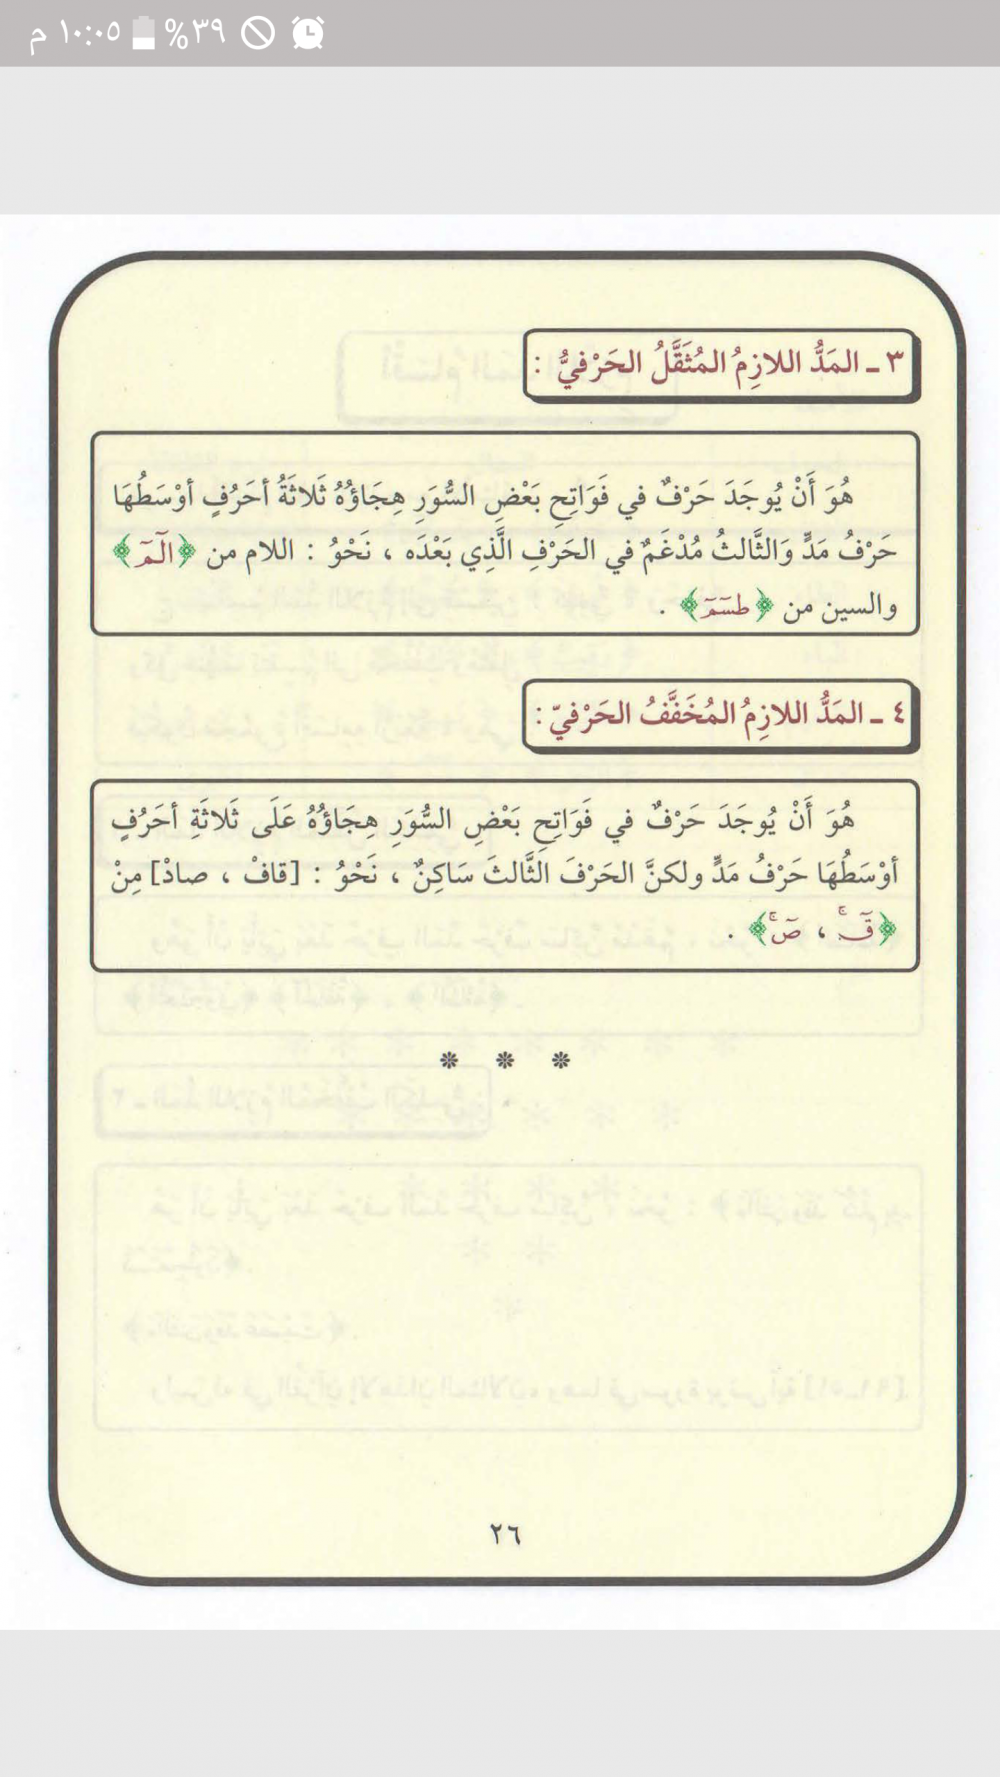 ١٠:٠٥ م ٣٩%
٣ ـ المَدُّ اللازِمُ المُثَقَّلُ الحَرْفيُّ :
هُوَ أَنْ يُوجَدَ حَرْفٌ في فَوَاتِحِ بَعْضِ السُّوَرِ هِجَاؤُهُ ثَلاثَةُ أحَرُفٍ أوْسَطُهَا
حَرْفُ مَدٍّ وَالثَّالثُ مُدْغَمٌ في الحَرْفِ الَّذِي بَعْدَه ، نَحْوُ : اللام من ﴿الٓمٓ﴾
والسين من ﴿طسٓمٓ﴾ .
٤ ـ المَدُّ اللازِمُ المُخَفَّفُ الحَرْفيّ :
هُوَ أَنْ يُوجَدَ حَرْفٌ في فَوَاتِحِ بَعْضِ السُّوَرِ هِجَاؤُهُ عَلَى ثَلاثَةِ أحَرُفٍ
أوْسَطُهَا حَرْفُ مَدٍّ ولكنَّ الحَرْفَ الثَّالثَ سَاكِنٌ ، نَحْوُ : [قافْ ، صادْ] مِنْ
﴿قٓۚ ، صٓۚ﴾ .
٢٦